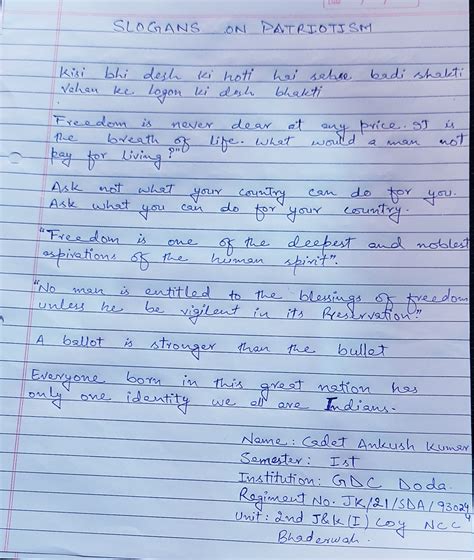 SLOGANS ON PATRIOTISM
Kisi bhi desh ki hoti hai sabse badi shakti
vahan ke logon ki desh bhakti
Freedom is never dear at any price. It is
the breath of life. What would a man not
pay for living?"
Ask not what your country can do for you.
Ask what you can do for your country.
"Freedom is one of the deepest and noblest
aspirations of the human spirit".
"No man is entitled to the blessings of freedom
unless he be vigilent in its Preservation."
A ballot is stronger than the bullet
Everyone born in this great nation has
only one identity we all are Indians.
Name: Cadet Ankush Kumar
Semester: Ist
Institution: GDC Doda.
Regiment No. JK/21/SDA/93024
Unit: 2nd J&K (I) Coy NCC
Bhaderwah.